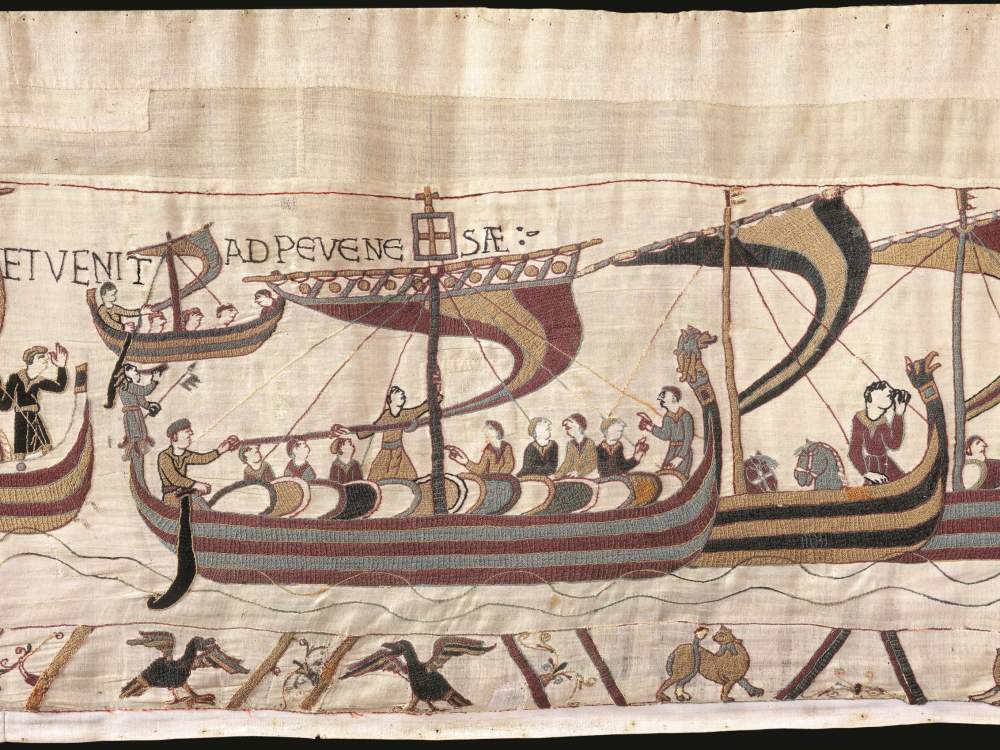 ET VENIT AD PEVENESÆ:-